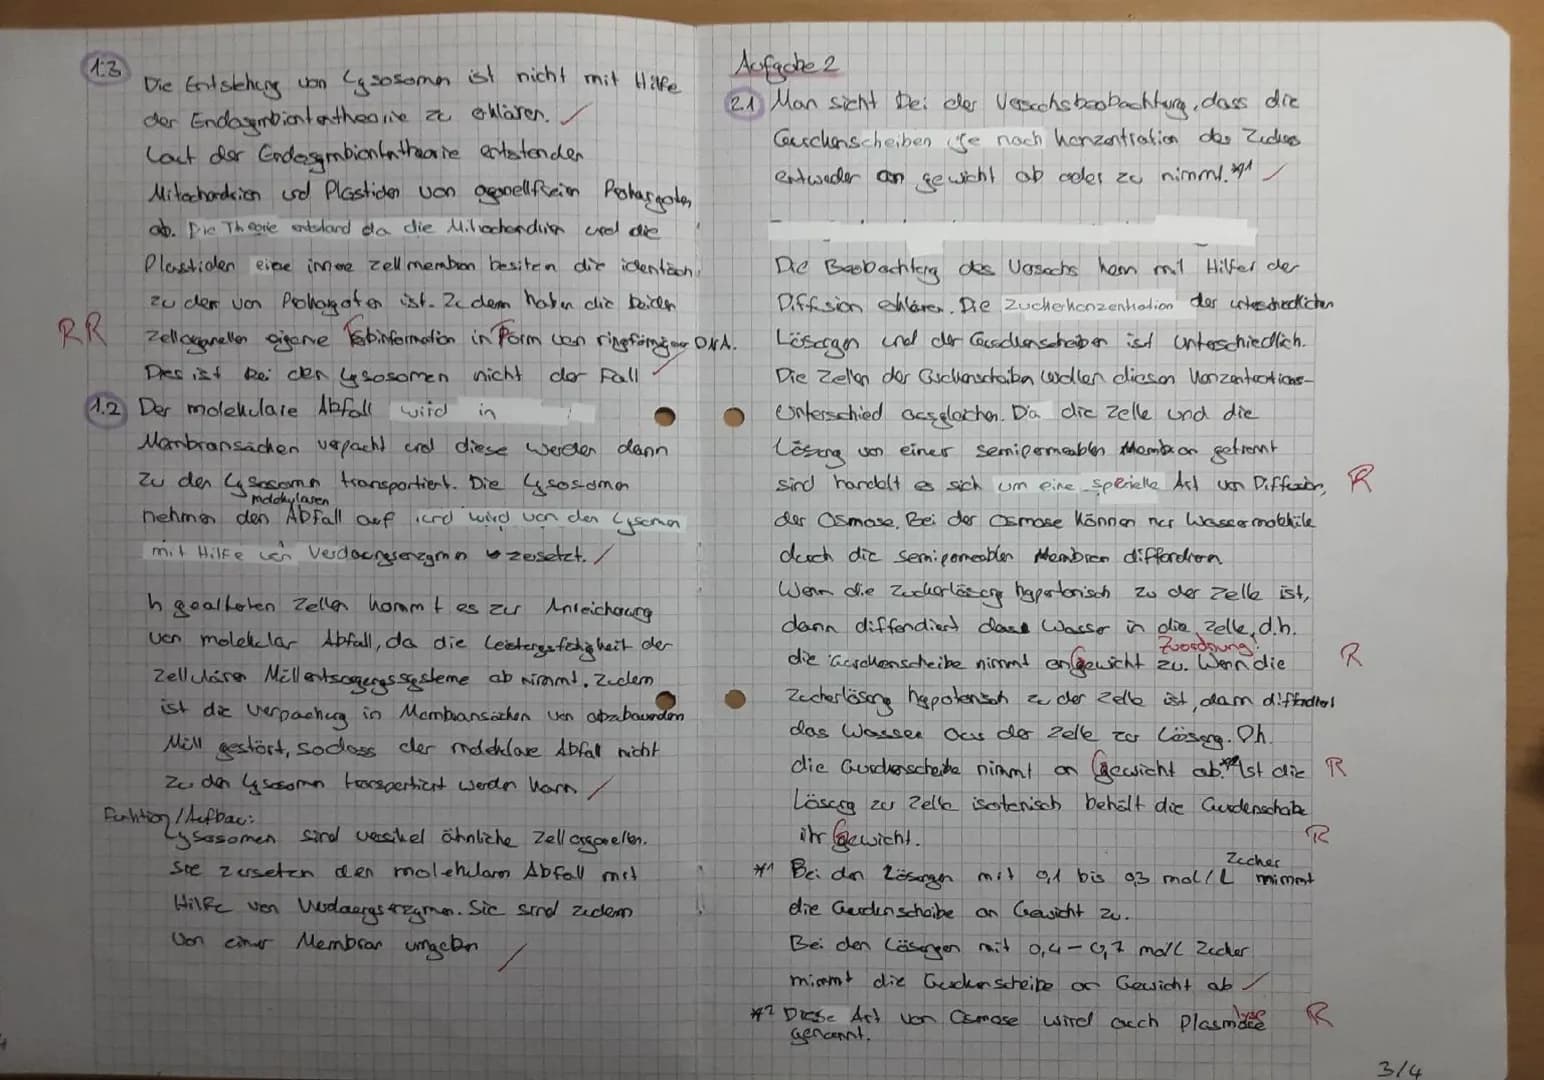 1.3
Die Entstehung von Lysosomen ist nicht mit Hilfe
der Endosymbiontentheorie zu erklären.
Laut der Endosymbiontentheorie entstanden
Mitochondrien und Plastiden von organellfreien Prokaryoten
ab. Die Theorie entstand da die Mitochondrien und die
Plastiden eine innere Zellmembran besitzen die identisch
zu dem von Prokaryoten ist. Zudem haben die beiden
RR Zellorganellen eigene Erbinformation in Form von ringförmiger DNA.
Dies ist bei den Lysosomen nicht der Fall
1.2 Der molekulare Abfall wird in
Membransäcken verpackt und diese werden dann
zu den Lysosomen transportiert. Die Lysosomen
molekularen
nehmen den Abfall auf und wird von den
mit Hilfe von Verdauungsenzymen zersetzt.
In gealterten Zellen kommt es zur Anreicherung
von molekular Abfall, da die Leistungsfähigkeit der
zellulären Müllentsorgungssysteme ab nimmt. Zudem
ist die Verpackung in Membransäcken von abzubauenden
Müll gestört, sodass der molekulare Abfall nicht
zu den Lysosomen transportiert werden kann
Funktion/Aufbau:
Lysosomen sind vesikel ähnliche Zellorganellen.
Sie zersetzen den molekularen Abfall mit
Hilfe von Verdauungsenzymen. Sie sind zudem
von einer Membran umgeben
Aufgabe 2
2.1 Man sieht bei der Versuchsbeobachtung, dass die
Gurkenscheiben je nach Konzentration des Zuckers
entweder an gewicht ab oder zu nimmt. *1
Die Beobachtung des Versuchs kann mit Hilfer der
Diffusion erklären. Die Zuckerkonzentration der unterschiedlichen
Lösungen und der Gurkenscheiben ist unterschiedlich.
Die Zellen der Gurkenscheiben wollen diesen Konzentrations-
unterschied ausgleichen. Da die Zelle und die
Lösung von einer semipermeablen Membran getrennt
sind handelt es sich um eine spezielle Art von Diffusion, R
der Osmose. Bei der Osmose können nur Wassermoleküle
durch die semipermeablen Membran diffundieren
Wenn die Zuckerlösung hypertonisch zu der Zelle ist,
dann diffundiert das Wasser in die Zelle, d.h.
Zuordnung!
die Gurkenscheibe nimmt an gewicht zu. Wenn die R
Zuckerlösung hypotonisch zu der Zelle ist, dann diffundiert
das Wasser aus der Zelle zur Lösung. Dh.
die Gurkenscheibe nimmt an gewicht ab. *2 Ist die R
Lösung zu Zelle isotonisch behält die Gurkenscheibe
ihr gewicht. R
Zucker
*1 Bei den Lösungen mit 0,1 bis 0,3 mol/L nimmt
die Gurkenscheibe an Gewicht zu.
Bei den Lösungen mit 0,4 - 0,7 mol/L Zucker
nimmt die Gurkenscheibe an Gewicht ab
*2 Diese Art von Osmose wird auch R
genannt.
3/4